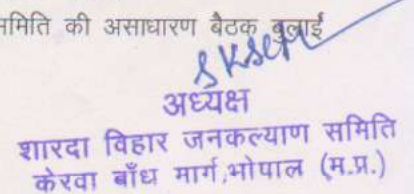 समिति की असाधारण बैठक बुलाई
अध्यक्ष
शारदा विहार जनकल्याण समिति
केरवा बाँध मार्ग,भोपाल (म.प्र.)